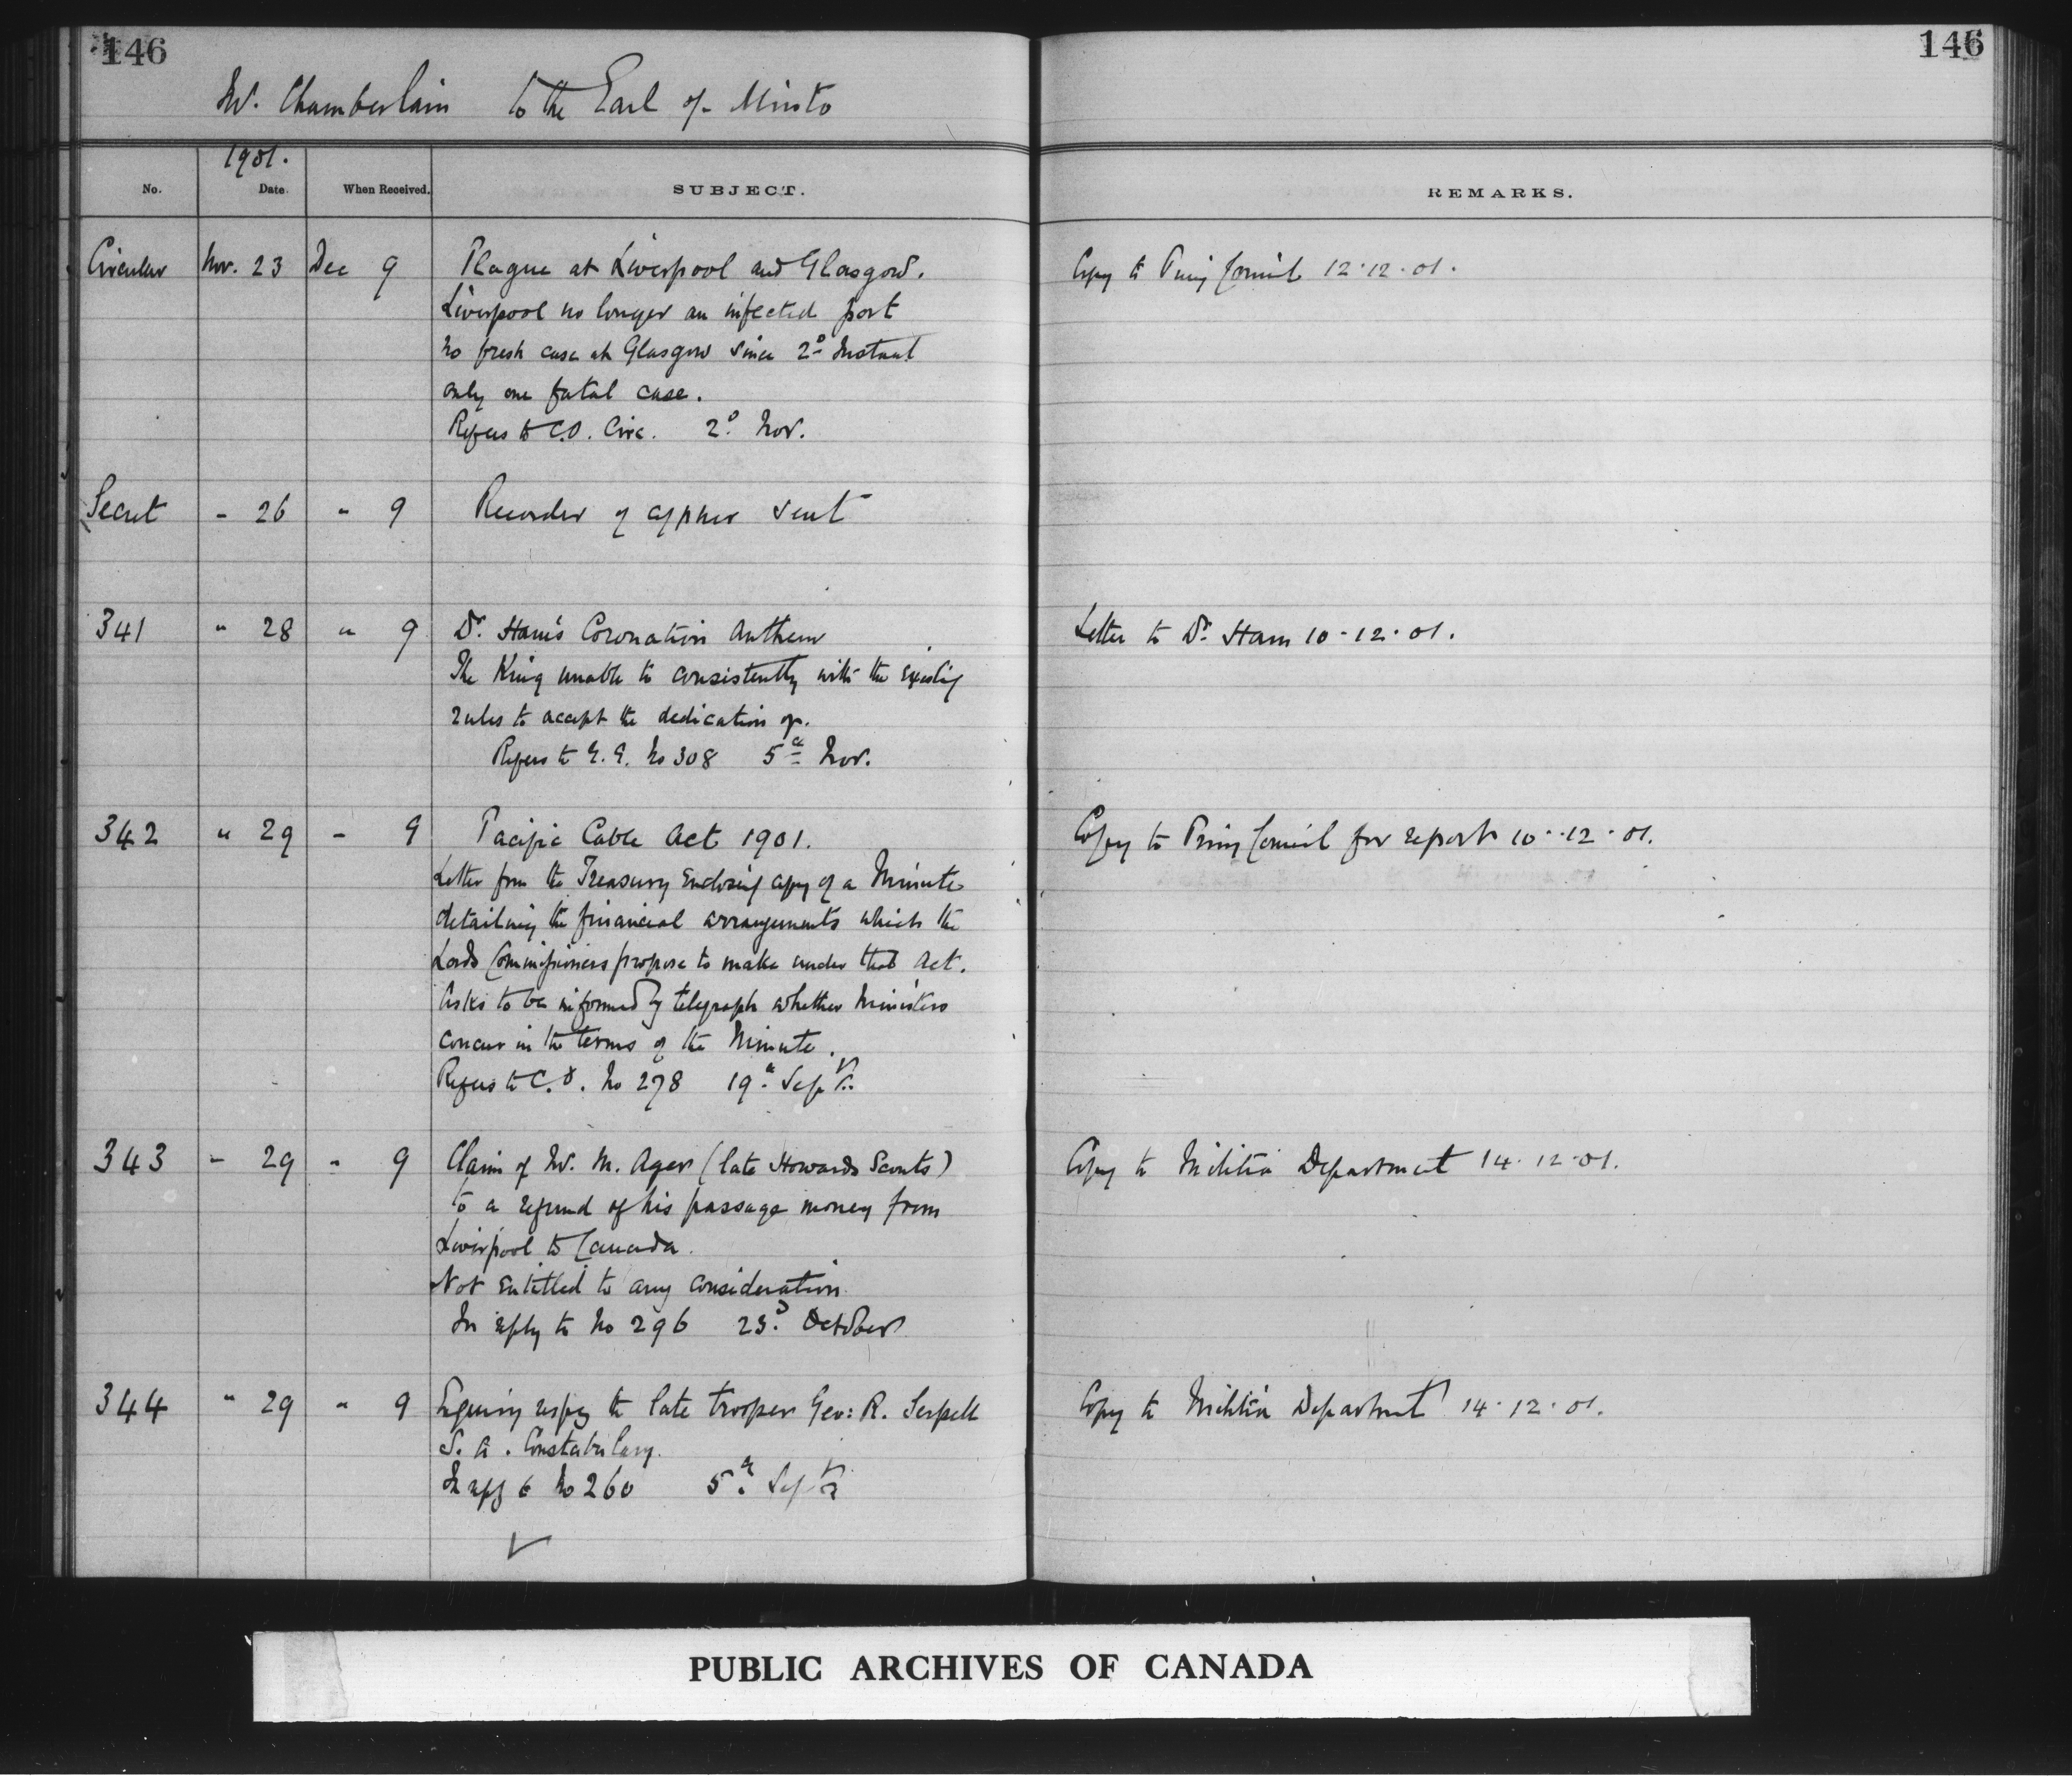 146
146
Mr. Chamberlain to the Earl of Minto
1901.
No. Date. When Received. SUBJECT. REMARKS.
Circular Nov. 23 Dec 9 Plague at Liverpool and Glasgow. Copy to Privy Council 12.12.01.
Liverpool no longer an infected port
no fresh case at Glasgow since 2d Instant
only one fatal case.
Refers to C.O. Circ. 2d Nov.
Secret - 26 " 9 Recorder of cypher sent
341 " 28 " 9 Dr. Ham's Coronation Anthem Letter to Dr. Ham 10-12-01.
The King unable to consistently with the existing
rules to accept the dedication of.
Refers to G.G. No 308 5th Nov.
342 " 29 - 9 Pacific Cable Act 1901. Copy to Privy Council for report 10-12-01.
Letter from the Treasury enclosing copy of a Minute
detailing the financial arrangements which the
Lords Commissioners propose to make under that Act.
Asks to be informed by telegraph whether Ministers
concur in the terms of the Minute.
Refers to C.O. No 278 19th Sept.
343 - 29 " 9 Claim of Mr. M. Ager (late Howards Scouts) Copy to Militia Department 14.12.01.
to a refund of his passage money from
Liverpool to Canada.
Not entitled to any consideration.
In reply to No 296 23d October
344 " 29 " 9 Enquiry respg the late trooper Geo: R. Serpell Copy to Militia Department 14.12.01.
S. A. Constabulary.
In reply to No 260 5th Sept
PUBLIC ARCHIVES OF CANADA